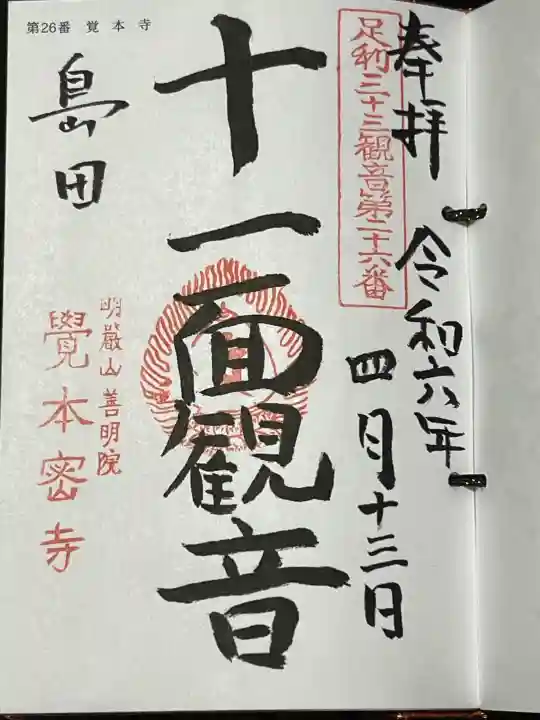 奉拝 令和六年
四月十三日
足利三十三観音第二十六番
十一面観音
第26番 覚本寺
島田
明嚴山 善明院
覺本密寺